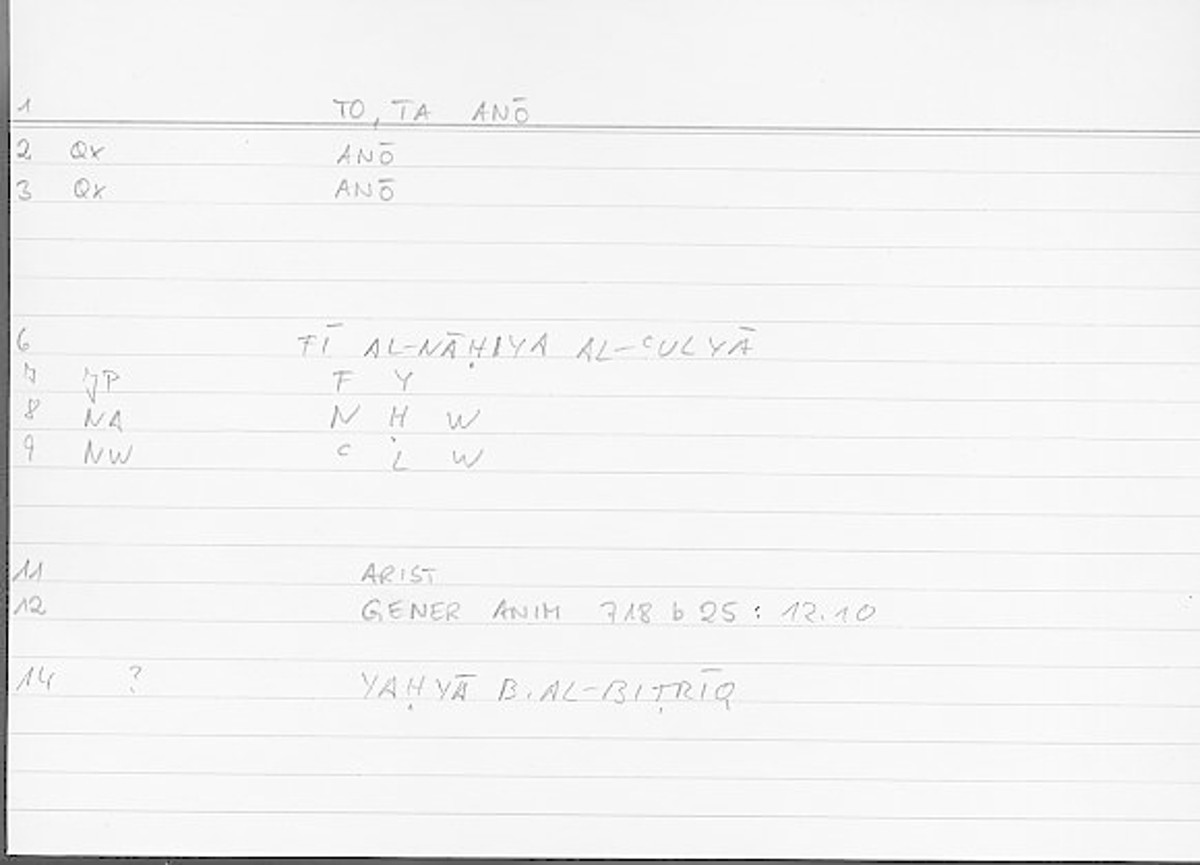 1 TO, TA ANŌ
2 Qx ANŌ
3 Qx ANŌ
6 FĪ AL-NĀḤIYA AL-ᶜULYĀ
7 JP F Y
8 NA N Ḥ W
9 NW ᶜ L W
11 ARIST
12 GENER ANIM 718 b 25 : 12.10
14 ? YAḤYĀ B. AL-BIṬRĪQ